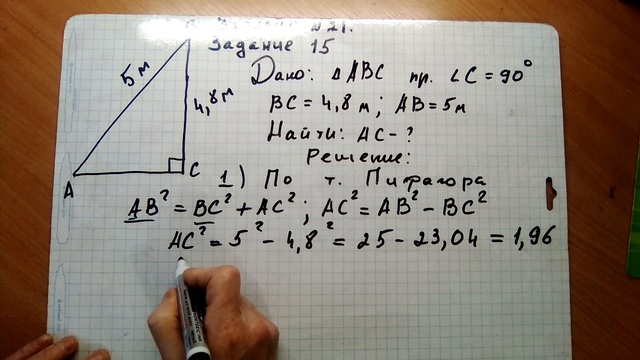 №21.
Задание 15
Дано: △ABC пр. ∠C = 90°
5 м
4,8 м
BC = 4,8 м; AB = 5 м
Найти: AC - ?
Решение:
A
C
1) По т. Пифагора
AB² = BC² + AC²; AC² = AB² - BC²
AC² = 5² - 4,8² = 25 - 23,04 = 1,96